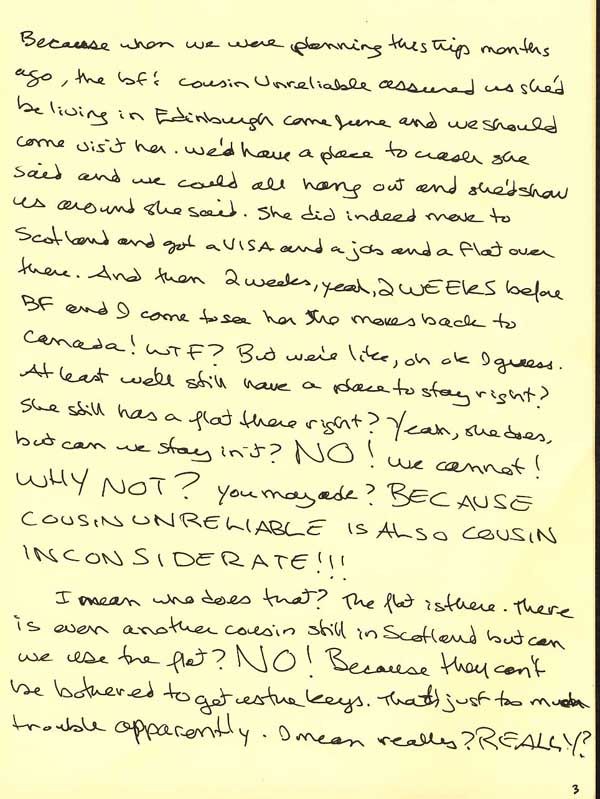 Because when we were planning this trip months
ago, the bf's cousin Unreliable assured us she'd
be living in Edinburgh come June and we should
come visit her. We'd have a place to crash she
said and we could all hang out and she'd show
us around she said. She did indeed move to
Scotland and got a VISA and a job and a flat over
there. And then 2 weeks, yeah, 2 WEEKS before
BF and I come to see her she moves back to
Canada! WTF? But we're like, oh ok I guess.
At least we'll still have a place to stay right?
She still has a flat there right? Yeah, she does,
but can we stay in it? NO! We cannot!
WHY NOT? you may ask? BECAUSE
COUSIN UNRELIABLE IS ALSO COUSIN
INCONSIDERATE!!!
I mean who does that? The flat is there. There
is even another cousin still in Scotland but can
we use the flat? NO! Because they can't
be bothered to get us the keys. That's just too much
trouble apparently. I mean really? REALLY?
3